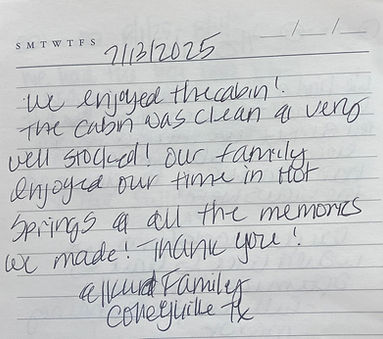 S M T W T F S
7/13/2025
We enjoyed the cabin!
The cabin was clean & very
well stocked! Our family
enjoyed our time in Hot
Springs & all the memories
we made! Thank you!
Family
TX